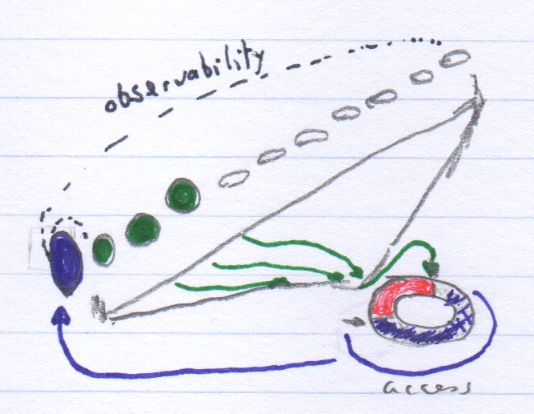 observability
access